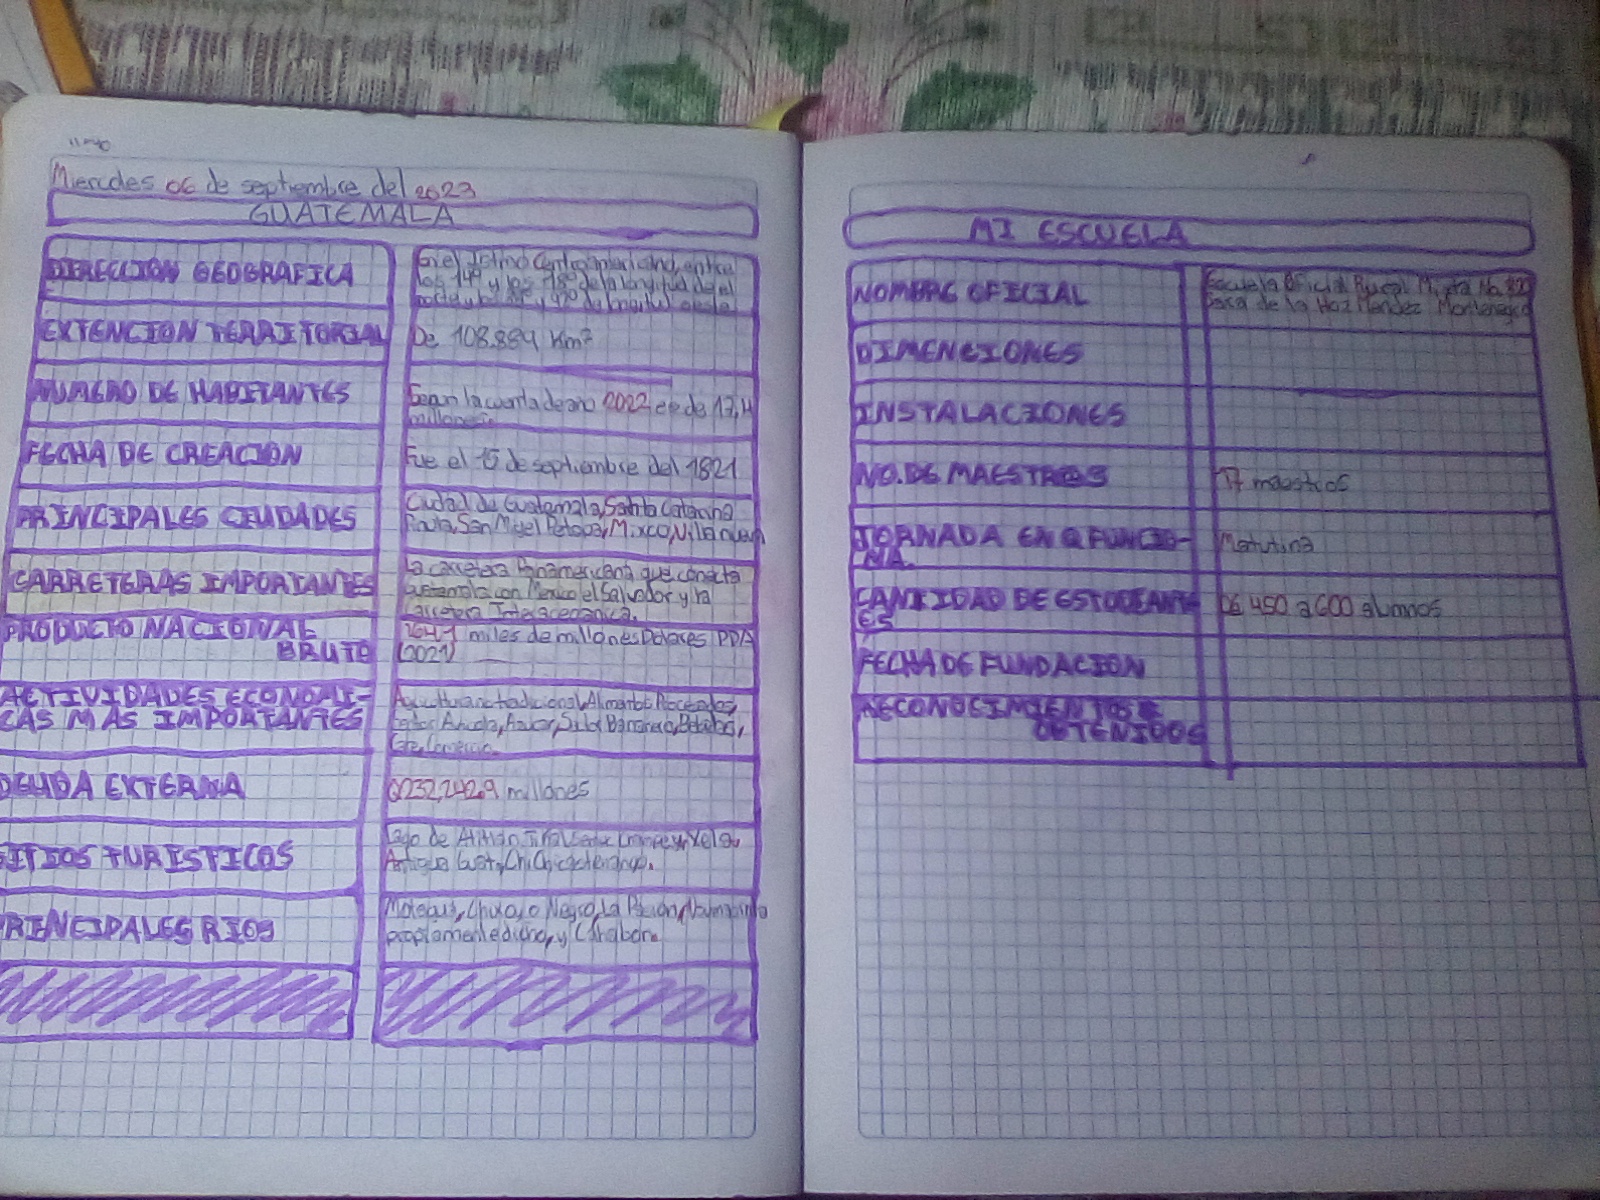 Miercoles 06 de septiembre del 2023
GUATEMALA
DIRECCION GEOGRAFICA
En el Istmo Centroamericano, entre
los 14° y los 18° de la longitud del
norte y los 88° y 92° de longitud oeste
EXTENCION TERRITORIAL
De 108.889 Km²
NUMERO DE HABITANTES
Segun la cuenta de año 2022 es de 17,4
millones
FECHA DE CREACION
Fue el 15 de septiembre del 1821
PRINCIPALES CIUDADES
Ciudad de Guatemala, Santa Catarina
Pinula, San Migel Petapa, Mixco, Villa nueva
CARRETERAS IMPORTANTES
La carretera Panamericana que conecta
Guatemala con Mexico, el Salvador y la
Carretera Interoceanica.
PRODUCTO NACIONAL
BRUTO
miles de millones Dolares PPA
(2021)
ACTIVIDADES ECONOMI-
CAS MAS IMPORTANTES
Agricultura no tradicional, Alimentos Procesados,
Azucar, Bananera, Bebidas,
Cafe, Comercio.
DEUDA EXTERNA
Q232,242.9 millones
SITIOS TURISTICOS
Lago de Atitlan, Tikal, Semuc Champey, Xela,
Antigua Guat, Chichicastenango.
PRINCIPALES RIOS
Motagua, Chixoy o Negro, La Pasion, Usumacinta
propiamente dicho, y Cahabon.
MI ESCUELA
NOMBRE OFICIAL
Escuela Oficial Rural Mixta No. 820
Sara de la Hoz Mendez Montenegro
DIMENCIONES
INSTALACIONES
NO. DE MAESTROS
17 maestros
JORNADA EN Q FUNCIO-
NA.
Matutina
CANTIDAD DE ESTUDIANT
ES
De 450 a 600 alumnos
FECHA DE FUNDACION
RECONOCIMIENTOS
OBTENIDOS